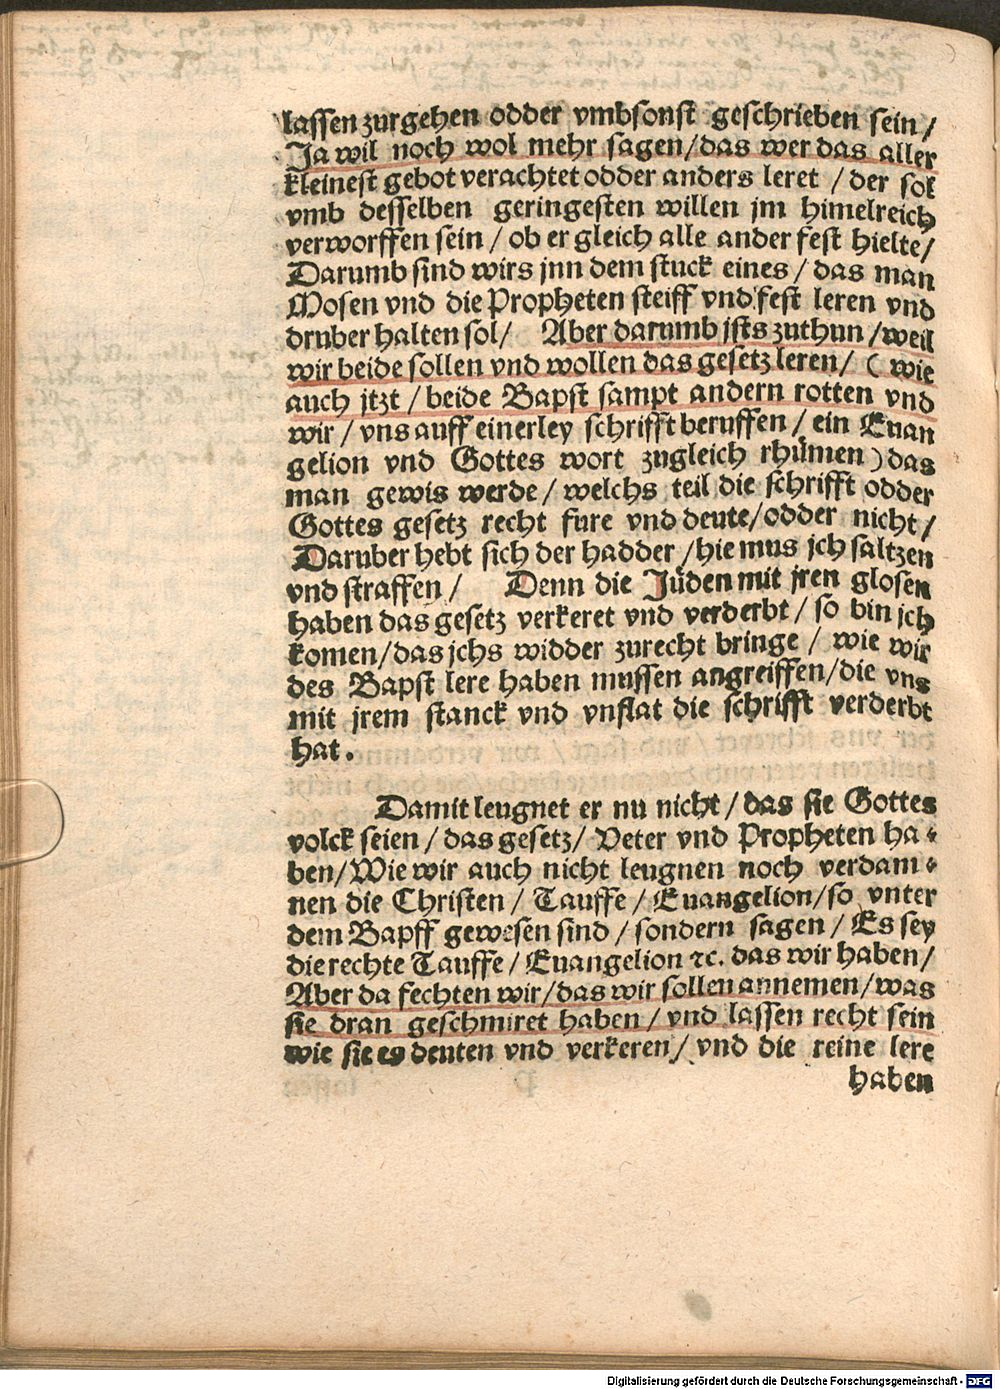 lassen zurgehen odder vmbsonst geschrieben sein /
Ja wil noch wol mehr sagen / das wer das aller
kleinest gebot verachtet odder anders leret / der sol
vmb desselben geringesten willen jm himelreich
verworffen sein / ob er gleich alle ander fest hielte /
Darumb sind wirs jnn dem stuck eines / das man
Mosen vnd die Propheten steiff vnd fest leren vnd
druber halten sol / Aber darumb jsts zuthun / weil
wir beide sollen vnd wollen das gesetz leren / ( wie
auch jtzt / beide Bapst sampt andern rotten vnd
wir / vns auff einerley schrifft beruffen / ein Euan
gelion vnd Gottes wort zugleich rhümen ) das
man gewis werde / welchs teil die schrifft odder
Gottes gesetz recht fure vnd deute / odder nicht /
Daruber hebt sich der hadder / hie mus jch saltzen
vnd straffen / Denn die Jüden mit jren glosen
haben das gesetz verkeret vnd verderbt / so bin jch
komen / das jchs widder zurecht bringe / wie wir
des Bapst lere haben mussen angreiffen / die vns
mit jrem stanck vnd vnflat die schrifft verderbt
hat .
Damit leugnet er nu nicht / das sie Gottes
volck seien / das gesetz / Veter vnd Propheten ha⸗
ben / Wie wir auch nicht leugnen noch verdam⸗
nen die Christen / Tauffe / Euangelion / so vnter
dem Bapff gewesen sind / sondern sagen / Es sey
die rechte Tauffe / Euangelion ꝛc. das wir haben /
Aber da fechten wir / das wir sollen annemen / was
sie dran geschmiret haben / vnd lassen recht sein
wie sie es deuten vnd verkeren / vnd die reine lere
haben
Digitalisierung gefördert durch die Deutsche Forschungsgemeinschaft - DFG